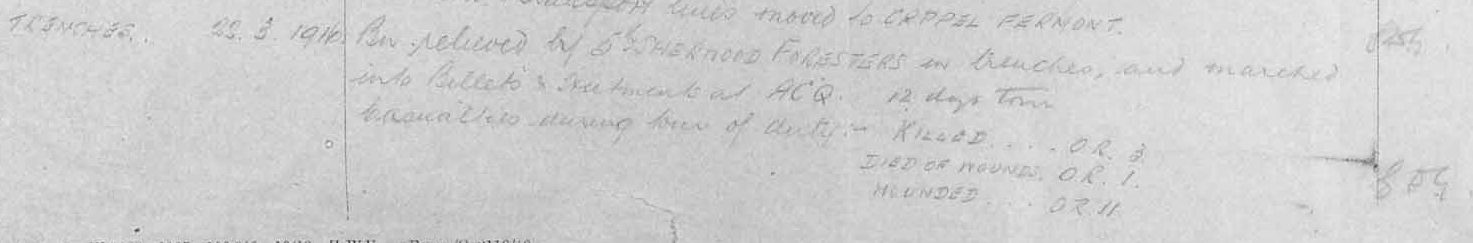 Transport lines moved to CAPPEL FERMONT.
TRENCHES. 22. 3. 1916. Bn relieved by 5th SHERWOOD FORESTERS in trenches, and marched
into Billets & Hutments at ACQ. 12 days tour
Casualties during tour of duty:- KILLED.... O.R. 3
DIED OF WOUNDS. O.R. 1.
WOUNDED.... OR 11